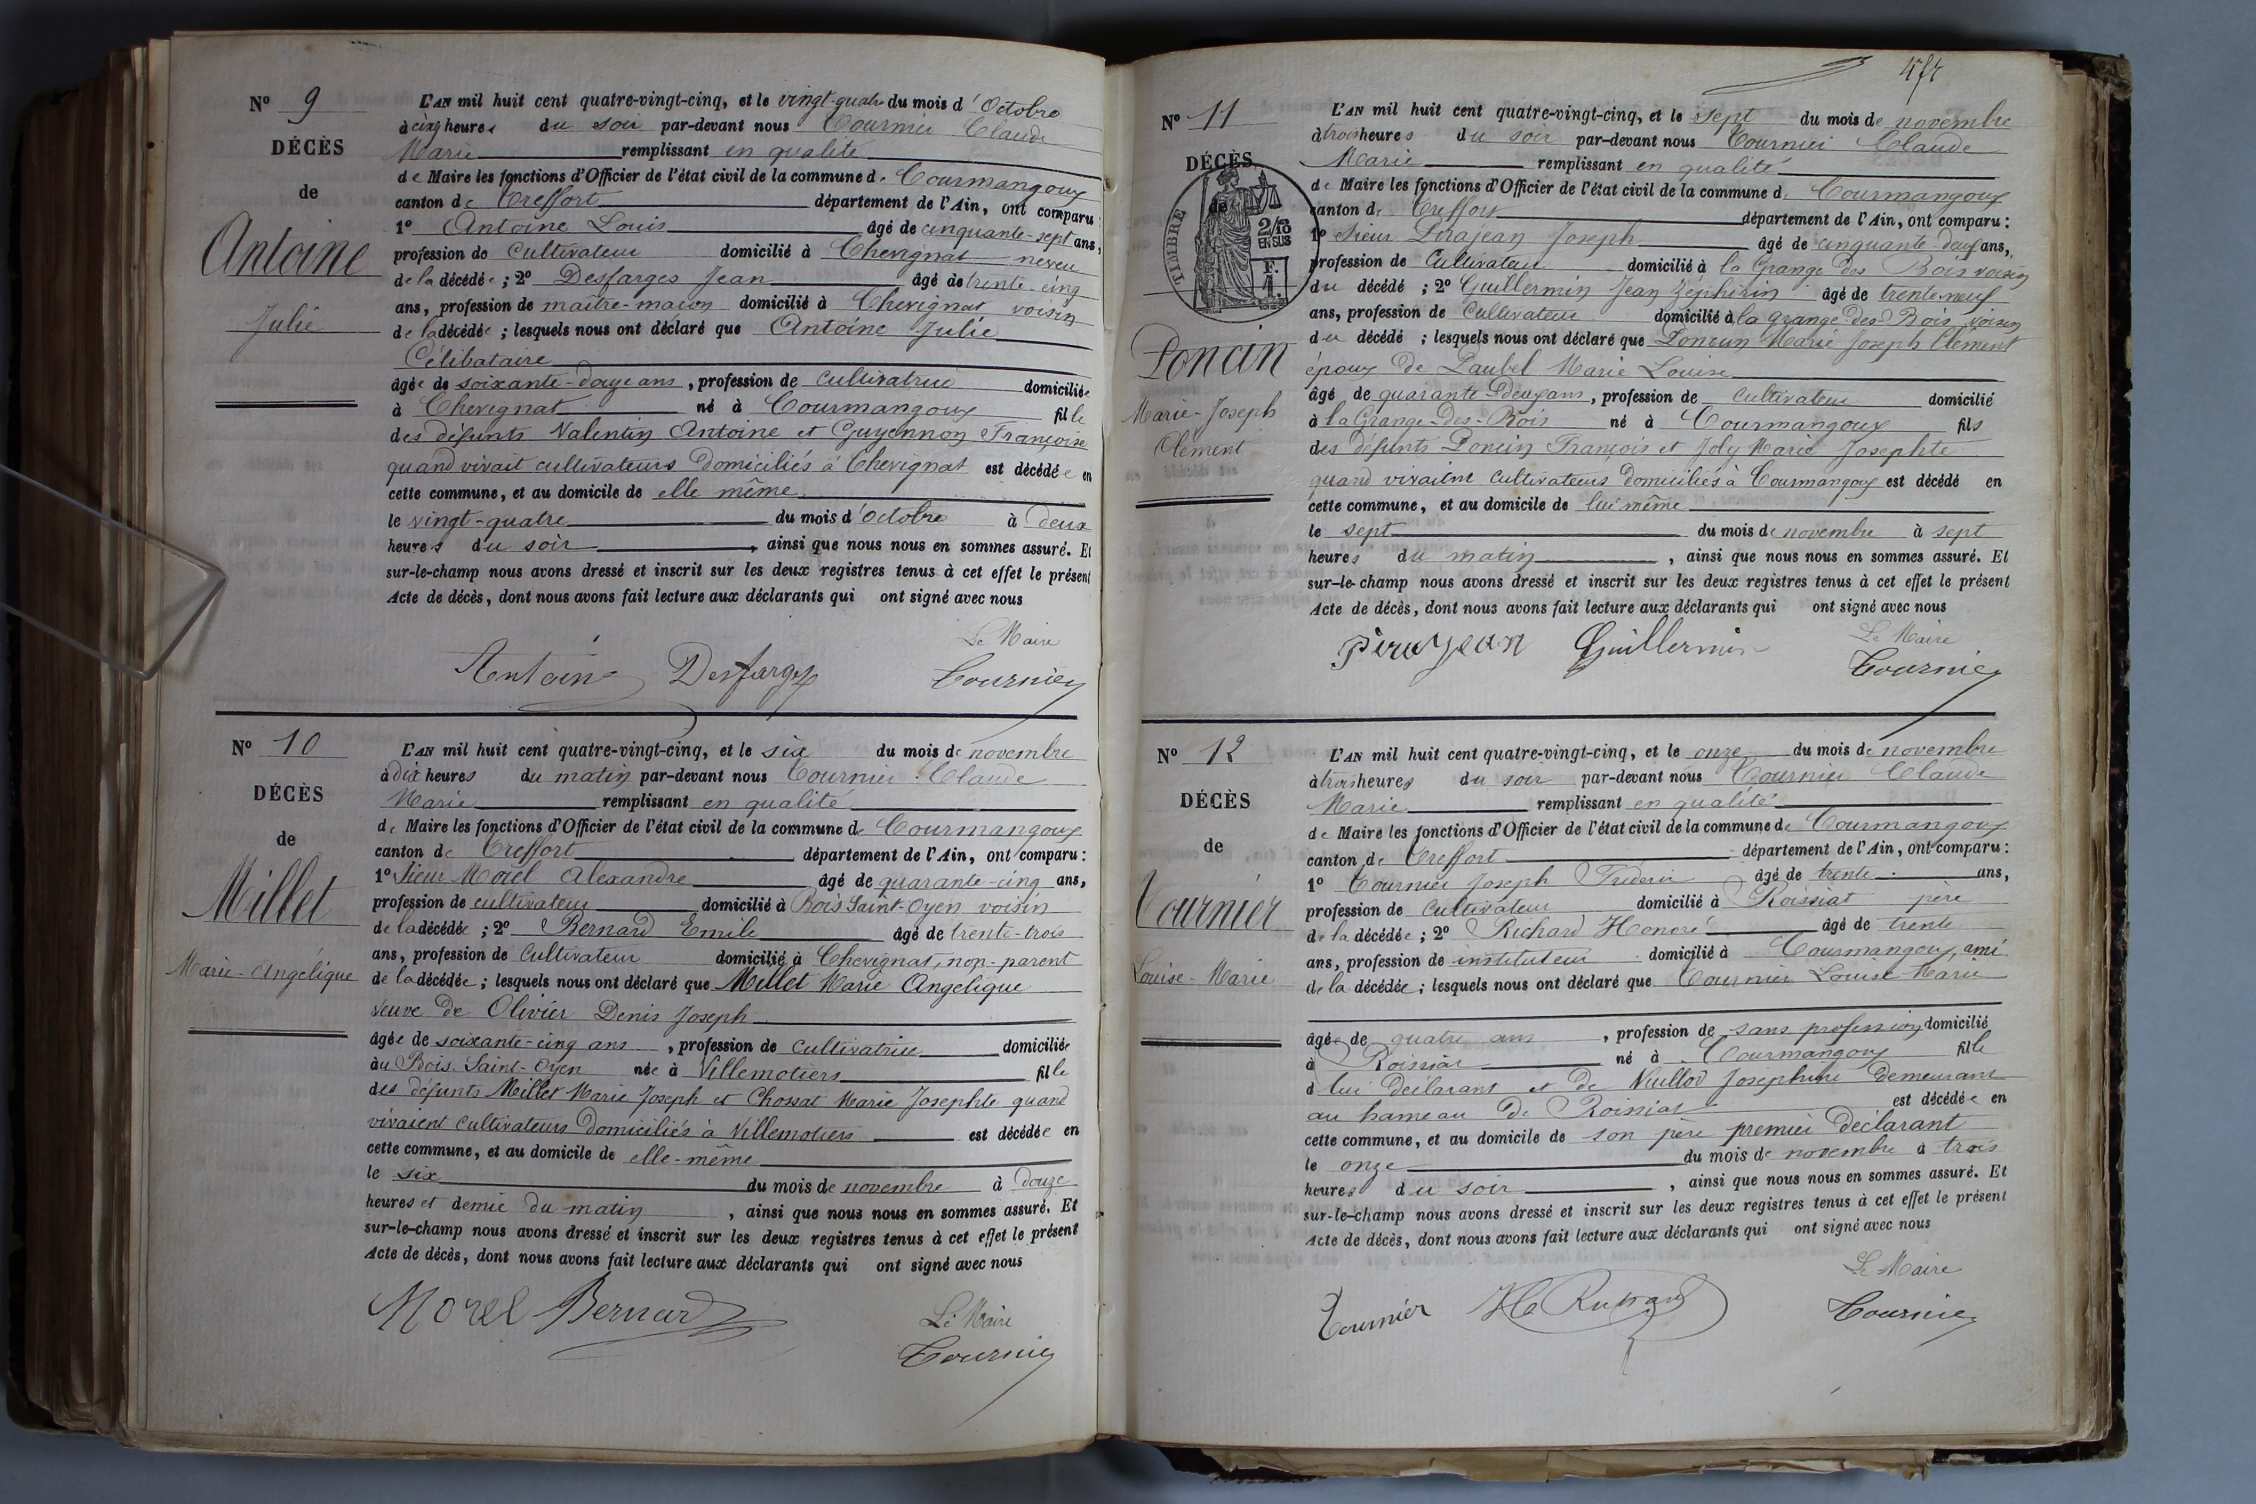 Nº 9
DÉCÈS
de
Antoine
Julie
L'AN mil huit cent quatre-vingt-cinq, et le vingt-quatre du mois d'Octobre
à cinq heures du soir par-devant nous Tournier Claude
Marie remplissant en qualité
de Maire les fonctions d'Officier de l'état civil de la commune de Courmangoux
canton de Treffort département de l'Ain, ont comparu :
1º Antoine Louis âgé de cinquante-sept ans,
profession de cultivateur domicilié à Chevignat neveu
de la décédée ; 2º Desfarges Jean âgé de trente-cinq
ans, profession de maître-maçon domicilié à Chevignat voisin
de la décédée ; lesquels nous ont déclaré que Antoine Julie
Célibataire
âgée de soixante-douze ans, profession de cultivatrice domiciliée
à Chevignat né à Courmangoux fille
des défunts Valentin Antoine et Guyennon Françoise
quand vivait cultivateurs domiciliés à Chevignat est décédée en
cette commune, et au domicile de elle même
le vingt-quatre du mois d'octobre à deux
heures du soir, ainsi que nous nous en sommes assuré. Et
sur-le-champ nous avons dressé et inscrit sur les deux registres tenus à cet effet le présent
Acte de décès, dont nous avons fait lecture aux déclarants qui ont signé avec nous
Le Maire
Antoine Desfarges Tournier
Nº 10
DÉCÈS
de
Millet
Marie-Angélique
L'AN mil huit cent quatre-vingt-cinq, et le six du mois de novembre
à dix heures du matin par-devant nous Tournier Claude
Marie remplissant en qualité
de Maire les fonctions d'Officier de l'état civil de la commune de Courmangoux
canton de Treffort département de l'Ain, ont comparu :
1º Sieur Morel Alexandre âgé de quarante-cinq ans,
profession de cultivateur domicilié à Bois Saint-Oyen voisin
de la décédée ; 2º Bernard Emile âgé de trente-trois
ans, profession de cultivateur domicilié à Chevignat, non-parent
de la décédée ; lesquels nous ont déclaré que Millet Marie Angélique
veuve de Olivier Denis Joseph
âgée de soixante-cinq ans, profession de cultivatrice domiciliée
au Bois Saint-Oyen née à Villemotiers fille
des défunts Millet Marie Joseph et Chossat Marie Josephte quand
vivaient cultivateurs domiciliés à Villemotiers est décédée en
cette commune, et au domicile de elle-même
le six du mois de novembre à douze
heures et demie du matin, ainsi que nous nous en sommes assuré. Et
sur-le-champ nous avons dressé et inscrit sur les deux registres tenus à cet effet le présent
Acte de décès, dont nous avons fait lecture aux déclarants qui ont signé avec nous
Morel Bernard Le Maire
Tournier
Nº 11
DÉCÈS
de
TIMBRE
2/10
EN SUS
F.
Poncin
Marie-Joseph
Clément
L'AN mil huit cent quatre-vingt-cinq, et le sept du mois de novembre
à trois heures du soir par-devant nous Tournier Claude
Marie remplissant en qualité
de Maire les fonctions d'Officier de l'état civil de la commune de Courmangoux
canton de Treffort département de l'Ain, ont comparu :
1º Sieur Pirajean Joseph âgé de cinquante-deux ans,
profession de Cultivateur domicilié à la Grange des Bois voisin
du décédé ; 2º Guillermin Jean Zéphirin âgé de trente-neuf
ans, profession de Cultivateur domicilié à la grange-des-Bois voisin
du décédé ; lesquels nous ont déclaré que Poncin Marie Joseph Clément
époux de Paubel Marie Louise
âgé de quarante-deux ans, profession de cultivateur domicilié
à la Grange-des-Bois né à Courmangoux fils
des défunts Poncin François et Joly Marie Josephte
quand vivaient cultivateurs domiciliés à Courmangoux est décédé en
cette commune, et au domicile de lui même
le sept du mois de novembre à sept
heures du matin, ainsi que nous nous en sommes assuré. Et
sur-le-champ nous avons dressé et inscrit sur les deux registres tenus à cet effet le présent
Acte de décès, dont nous avons fait lecture aux déclarants qui ont signé avec nous
Le Maire
Pirajean Guillermin Tournier
Nº 12
DÉCÈS
de
Tournier
Louise-Marie
L'AN mil huit cent quatre-vingt-cinq, et le onze du mois de novembre
à trois heures du soir par-devant nous Tournier Claude
Marie remplissant en qualité
de Maire les fonctions d'Officier de l'état civil de la commune de Courmangoux
canton de Treffort département de l'Ain, ont comparu :
1º Tournier Joseph Frédéric âgé de trente ans,
profession de cultivateur domicilié à Roissiat père
de la décédée ; 2º Richard Honoré âgé de trente
ans, profession de instituteur domicilié à Courmangoux, ami
de la décédée ; lesquels nous ont déclaré que Tournier Louise-Marie
âgée de quatre ans, profession de sans profession domicilié
à Roissiat né à Courmangoux fille
d lui déclarant et de Vuillod Joséphine demeurant
au hameau de Roissiat est décédée en
cette commune, et au domicile de son père premier déclarant
le onze du mois de novembre à trois
heures du soir, ainsi que nous nous en sommes assuré. Et
sur-le-champ nous avons dressé et inscrit sur les deux registres tenus à cet effet le présent
Acte de décès, dont nous avons fait lecture aux déclarants qui ont signé avec nous
Le Maire
Tournier H. Richard Tournier